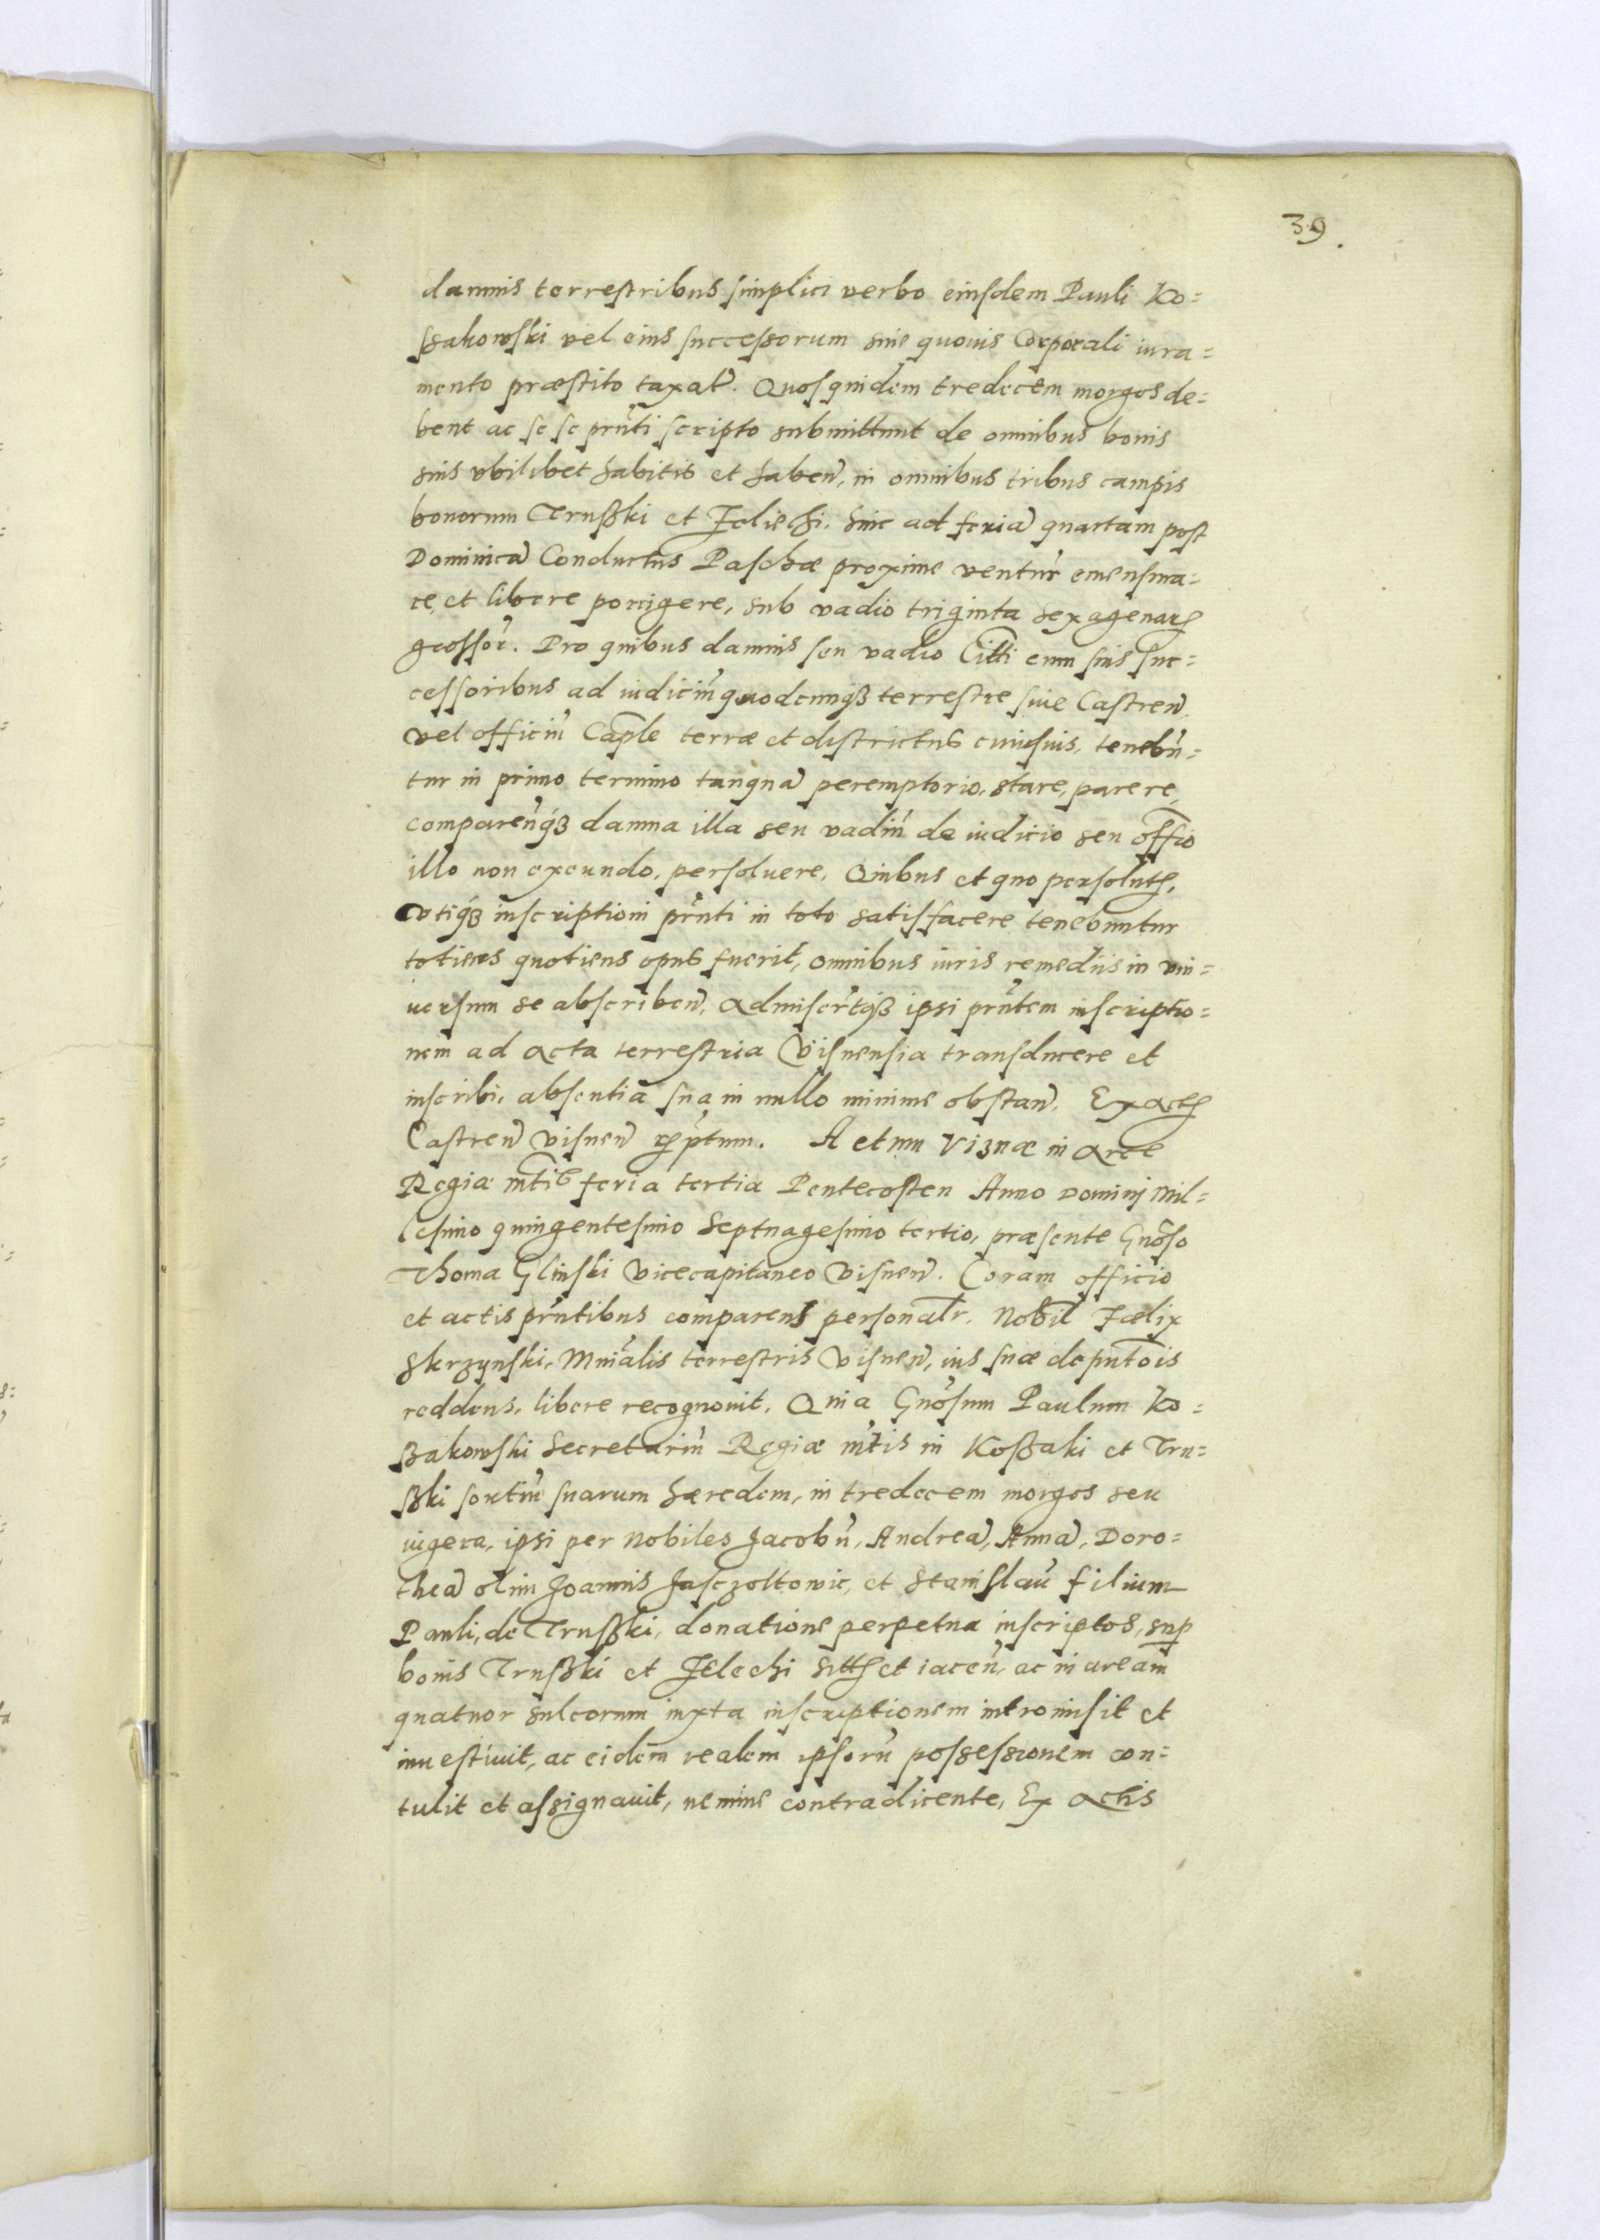 39.
damnis terrestribus simplici verbo eiusdem Pauli Ko=
ssakowski vel eius successorum sine quouis Corporali iura=
mento præstito taxat̃. Quosquidem tredecem morgos de=
bent ac se se prñti scripto submittunt de omnibus bonis
suis vbilibet habitis et haben̄, in omnibus tribus campis
bonorum Trußki et Jeliechi. hinc ad feriā quartam post
Dominicā Conductus Paschæ proxime ventur̃ emensura=
re, et libere porrigere, sub vadio triginta sexagenarꝝ
grossor̃. Pro quibus damnis seu vadio Citti cum suis suc=
cessoribus ad iudiciũ quodcunqꝫ terrestre siue Castren̄
vel officiũ Capłe terræ et districtus cuiusuis, tenebũ=
tur in primo termino tanquā peremptorio, stare, parere,
comparen̄qꝫ damna illa seu vadiũ de iudicio seu offi͠o
illo non exeundo, persoluere, Quibus et quo persolutꝭ,
vtiqꝫ inscriptioni prñti in toto satisfacere tenebuntur
totiens quotiens opus fuerit, omnibus iuris remediis in vni=
uersum se abscriben̄, Admiser̃tqꝫ ipsi prñtem inscriptio=
nem ad Acta terrestria Visnensia transducere et
inscribi, absentia sua in nullo minime obstan̄. Ex Actꝭ
Castren̄ Visnen̄ rꝝptum. Actum Viznæ in Arce
Regiæ mt͠is feria tertia Pentecosten Anno Dominj Mil=
lesimo quingentesimo Septuagesimo tertio, præsente Gnõso
Thoma Glinski Vicecapitaneo Visnen̄. Coram officio
et actis prñtibus comparens personalr̃. Nobil̃ Fælix
Skrzynski, Mniãlis terrestris Visnen̄, ius suæ deputõis
reddens, libere recognouit, Quia Gnõsum Paulum Ko=
ßakowski Secretariũ Regiæ mt͠is in Koßaki et Tru=
ßki sortiũ suarum hæredem, in tredecem morgos seu
iugera, ipsi per Nobiles Jacobũ, Andreā, Annā, Doro=
theā olim Joannis Jasczoltowic, et Stanislaũ filium
Pauli, de Trußki, donatione perpetua inscriptos, sup̱
bonis Trußki et Jelechi sittꝭ et iacen̄, ac in aream
quatuor sulcorum iuxta inscriptionem intromisit et
inuestiuit, ac eidem realem ipsorũ possessionem con=
tulit et assignauit, nemine contradicente, Ex Actis